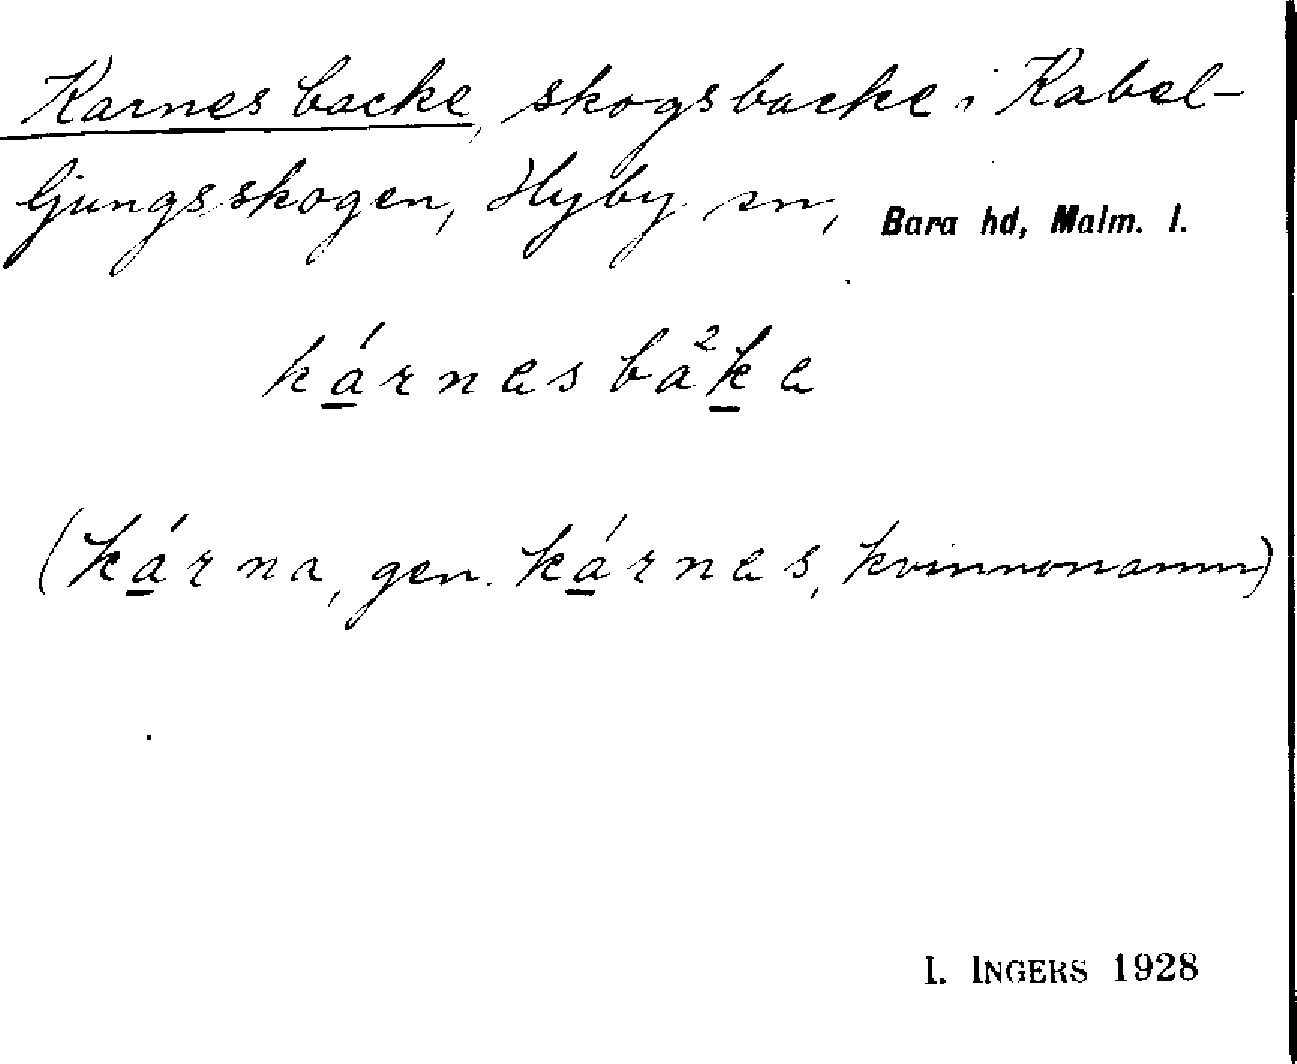 Karnes backe, skogsbacke i Kabel-
ljungsskogen, Hyby sn, Bara hd, Malm. l.
ká̱rnesbå²ḵe
(ká̱rna, gen. ká̱rnes, kvinnonamn)
I. INGERS 1928